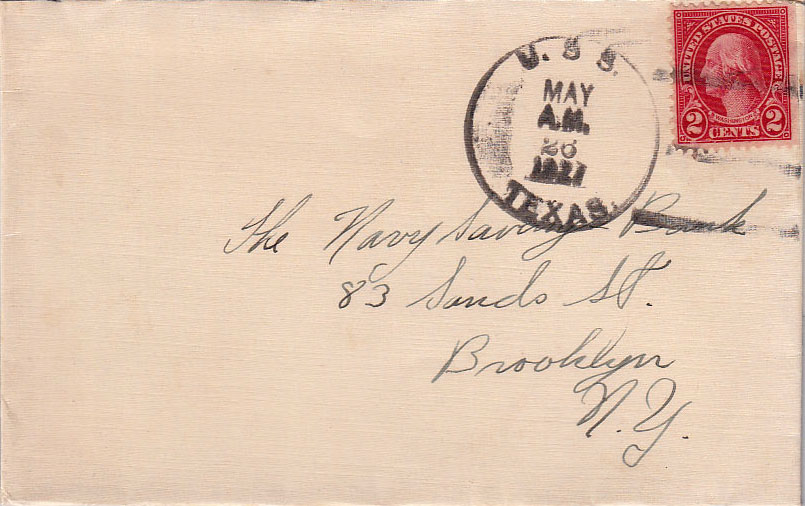 U.S.S.
MAY
A.M.
26
1927
TEXAS.
UNITED STATES POSTAGE
WASHINGTON
2 CENTS 2
The Navy Savings Bank
83 Sands St.
Brooklyn
N.Y.